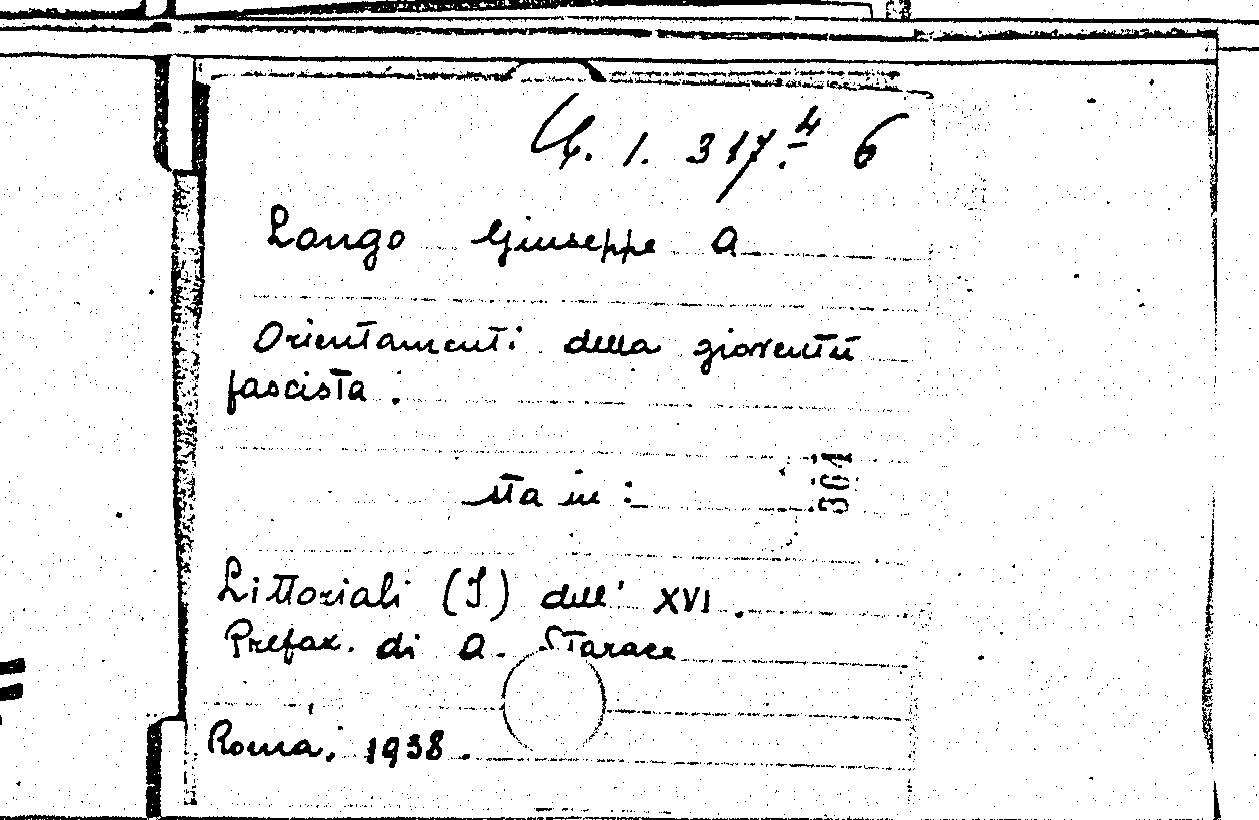 1. 317.4 6
Longo Giuseppe A
Orientamenti della gioventù
fascista.
sta in:
364
Littoriali (I) dell' XVI.
Prefaz. di A. Starace
Roma, 1938.